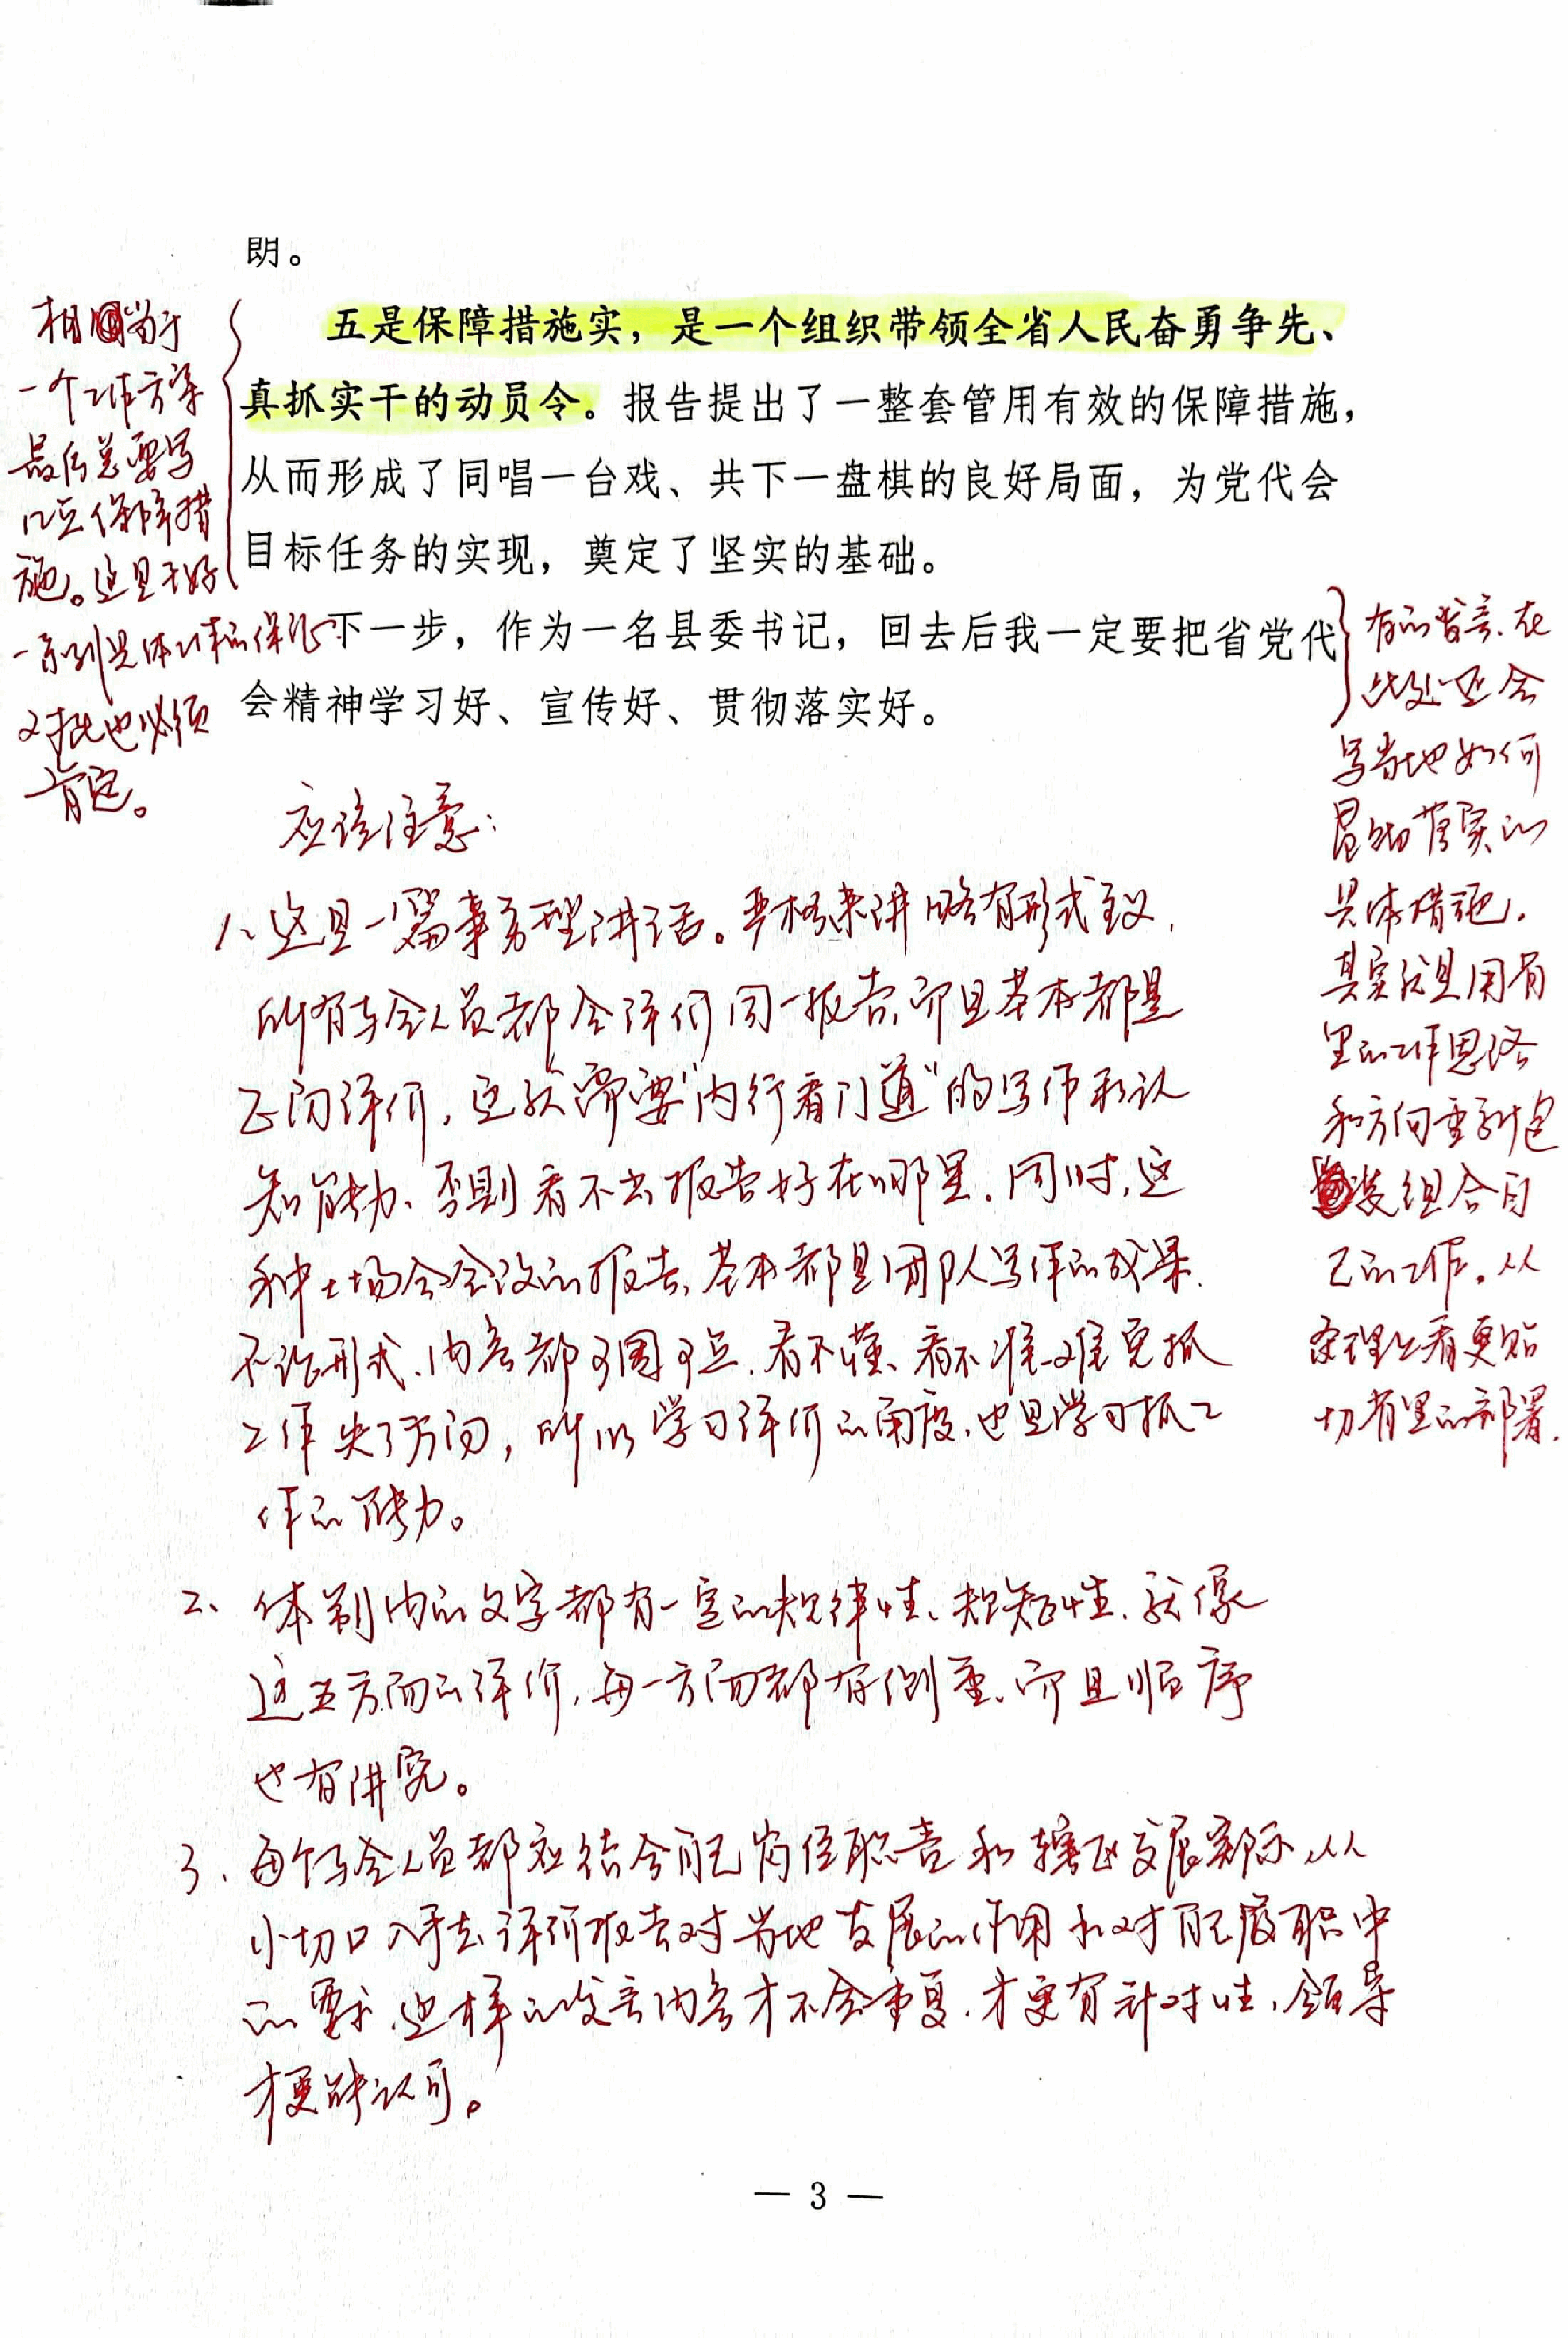 朗。
五是保障措施实，是一个组织带领全省人民奋勇争先、
真抓实干的动员令。报告提出了一整套管用有效的保障措施，
从而形成了同唱一台戏、共下一盘棋的良好局面，为党代会
目标任务的实现，奠定了坚实的基础。
下一步，作为一名县委书记，回去后我一定要把省党代
会精神学习好、宣传好、贯彻落实好。
相当于
一个工作方案
最后总要写
几点保障措
施。这是干好
一系列具体工作的保证
对此也必须
肯定。
有的发言，在
此处还会
写当地如何
贯彻落实的
具体措施。
其实就是用省
里的工作思路
和方向重新包
装组合自
己的工作。从
条理上看更贴
切省里的部署。
应该注意：
1、这是一篇事务型讲话。严格来讲略有形式主义，
所有与会人员都会评价同一报告，而且基本都是
正面评价，这就需要“内行看门道”的写作和认
知能力、否则看不出报告好在哪里。同时，这
种大场合会议的报告，基本都是团队写作的成果。
不论形式、内容都可圈可点，看不懂、看不准、难免抓
工作失了方向，所以学习评价的角度，也是学习抓工
作的能力。
2、体制内的文字都有一定的规律性、规矩性，就像
这五方面的评价，每一方面都有侧重、而且顺序
也有讲究。
3、每个与会人员都应结合自己岗位职责和辖区发展实际，从
小切口入手去评价报告对当地发展的作用和对自己履职中
的要求，这样的发言内容才不会重复，才更有针对性，领导
才更能认可。
— 3 —